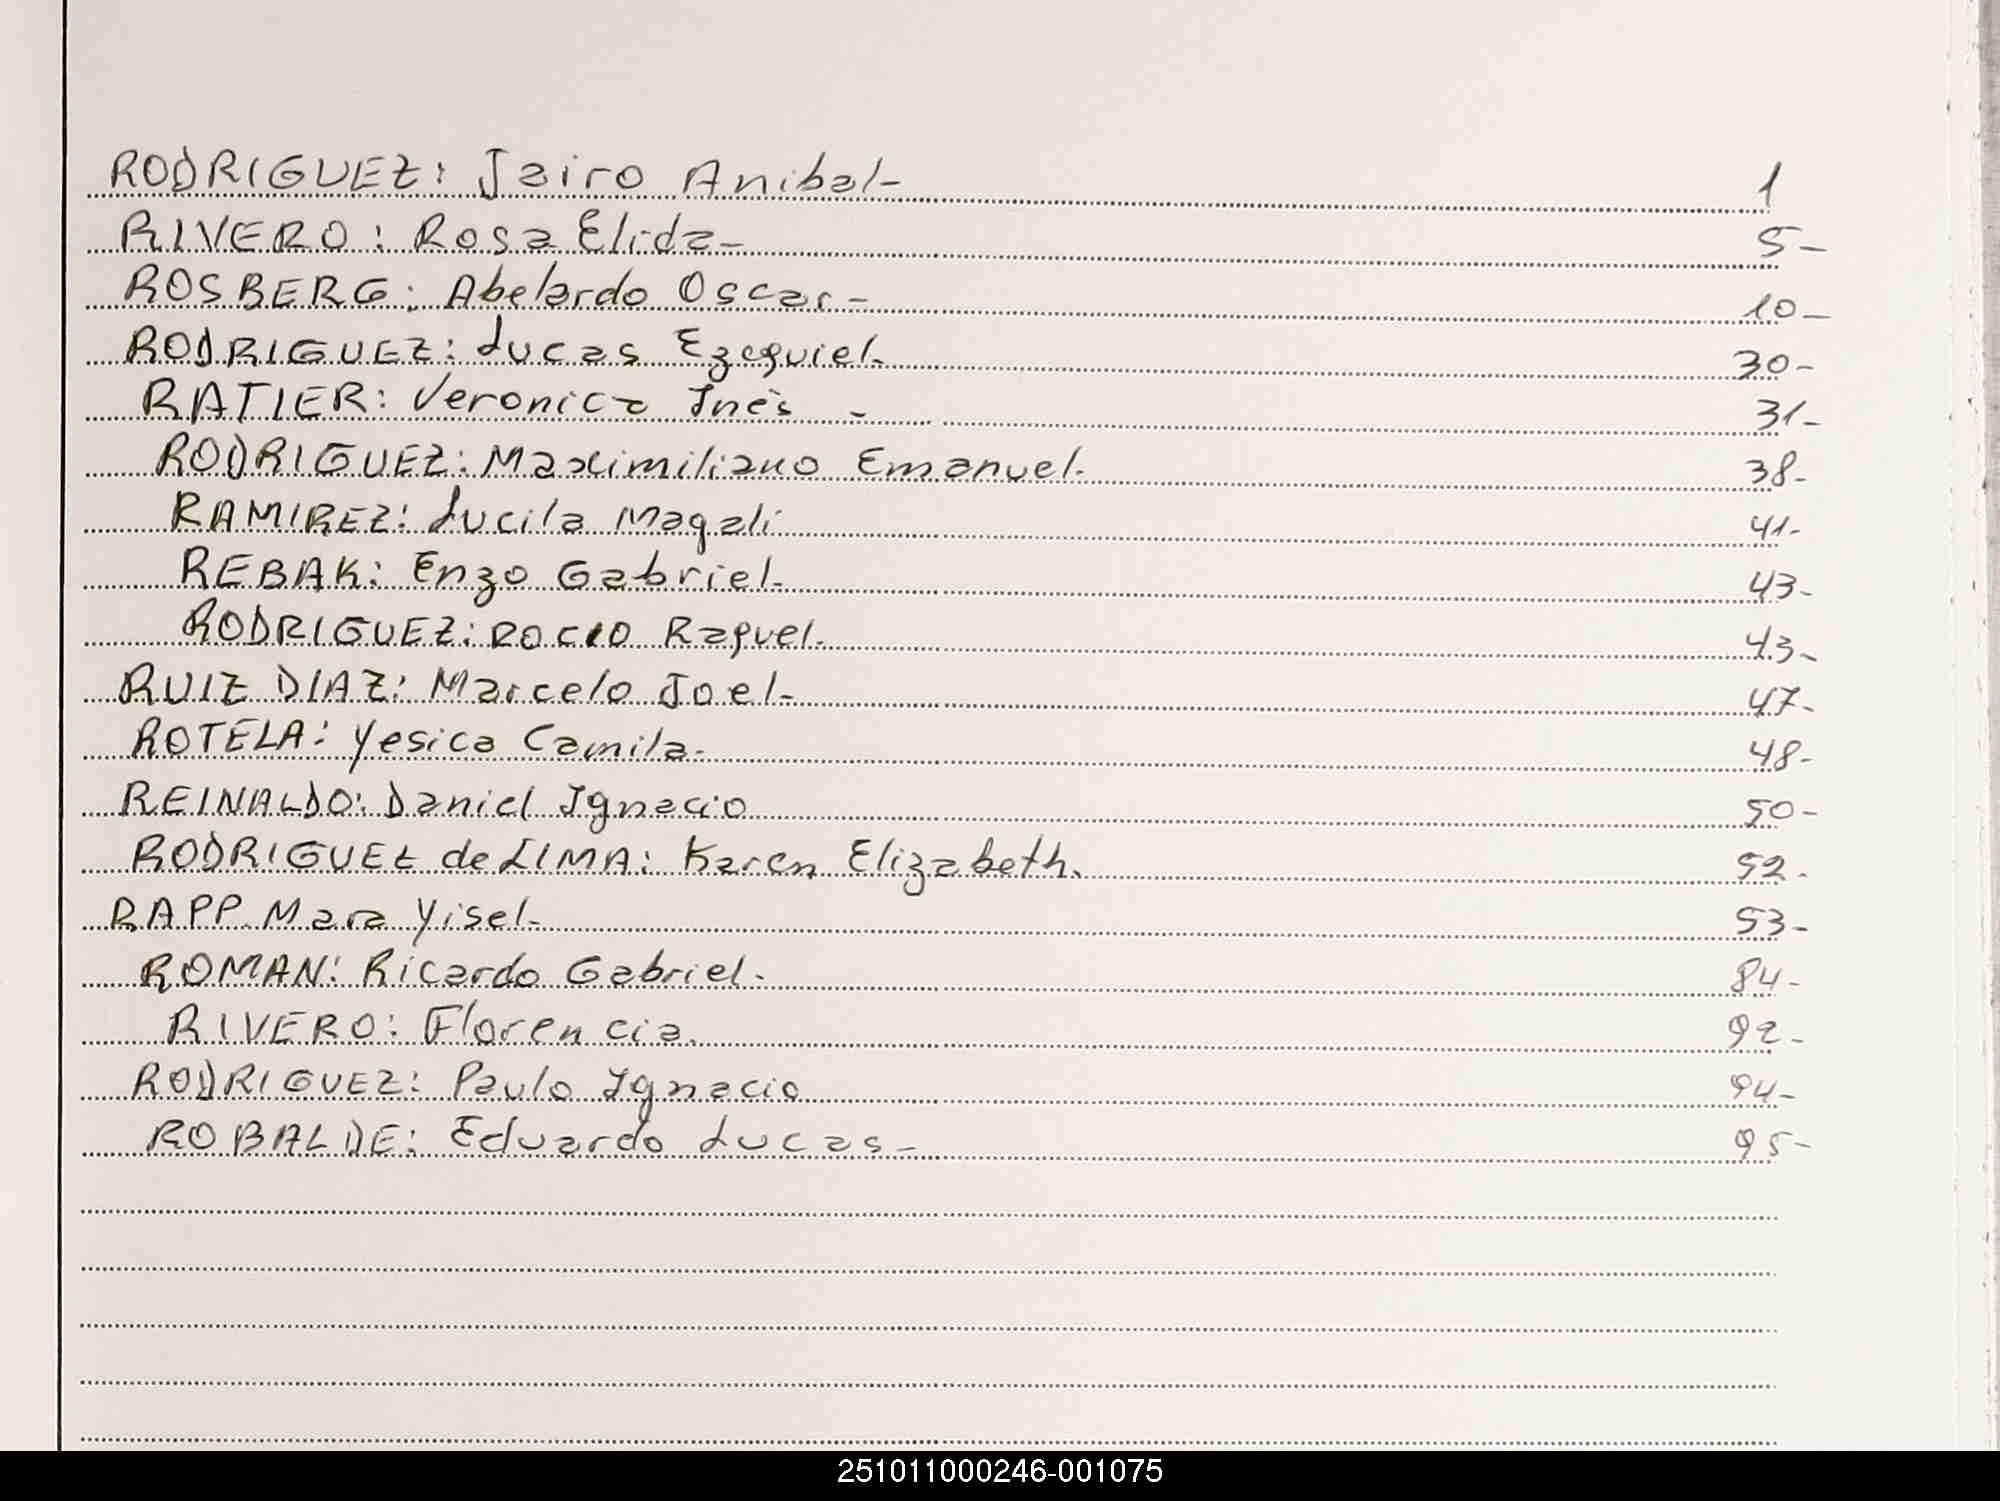 RODRIGUEZ: Jairo Anibal- 1
RIVERO: Rosa Elida- 5-
ROSBERG: Abelardo Oscar- 10-
RODRIGUEZ: Lucas Ezequiel- 30-
RATIER: Veronica Inés - 31-
RODRIGUEZ: Maximiliano Emanuel. 38-
RAMIREZ: Lucila Magali 41-
REBAK: Enzo Gabriel- 43-
RODRIGUEZ: ROCIO Raquel- 43-
RUIZ DIAZ: Marcelo Joel- 47-
ROTELA: Yesica Camila- 48-
REINALDO: Daniel Ignacio 50-
RODRIGUEZ de LIMA: Karen Elizabeth. 52.
RAPP. Mara Yisel- 53-
ROMAN: Ricardo Gabriel- 84-
RIVERO: Florencia. 92-
RODRIGUEZ: Paulo Ignacio 94-
ROBALDE: Eduardo Lucas- 95-
251011000246-001075